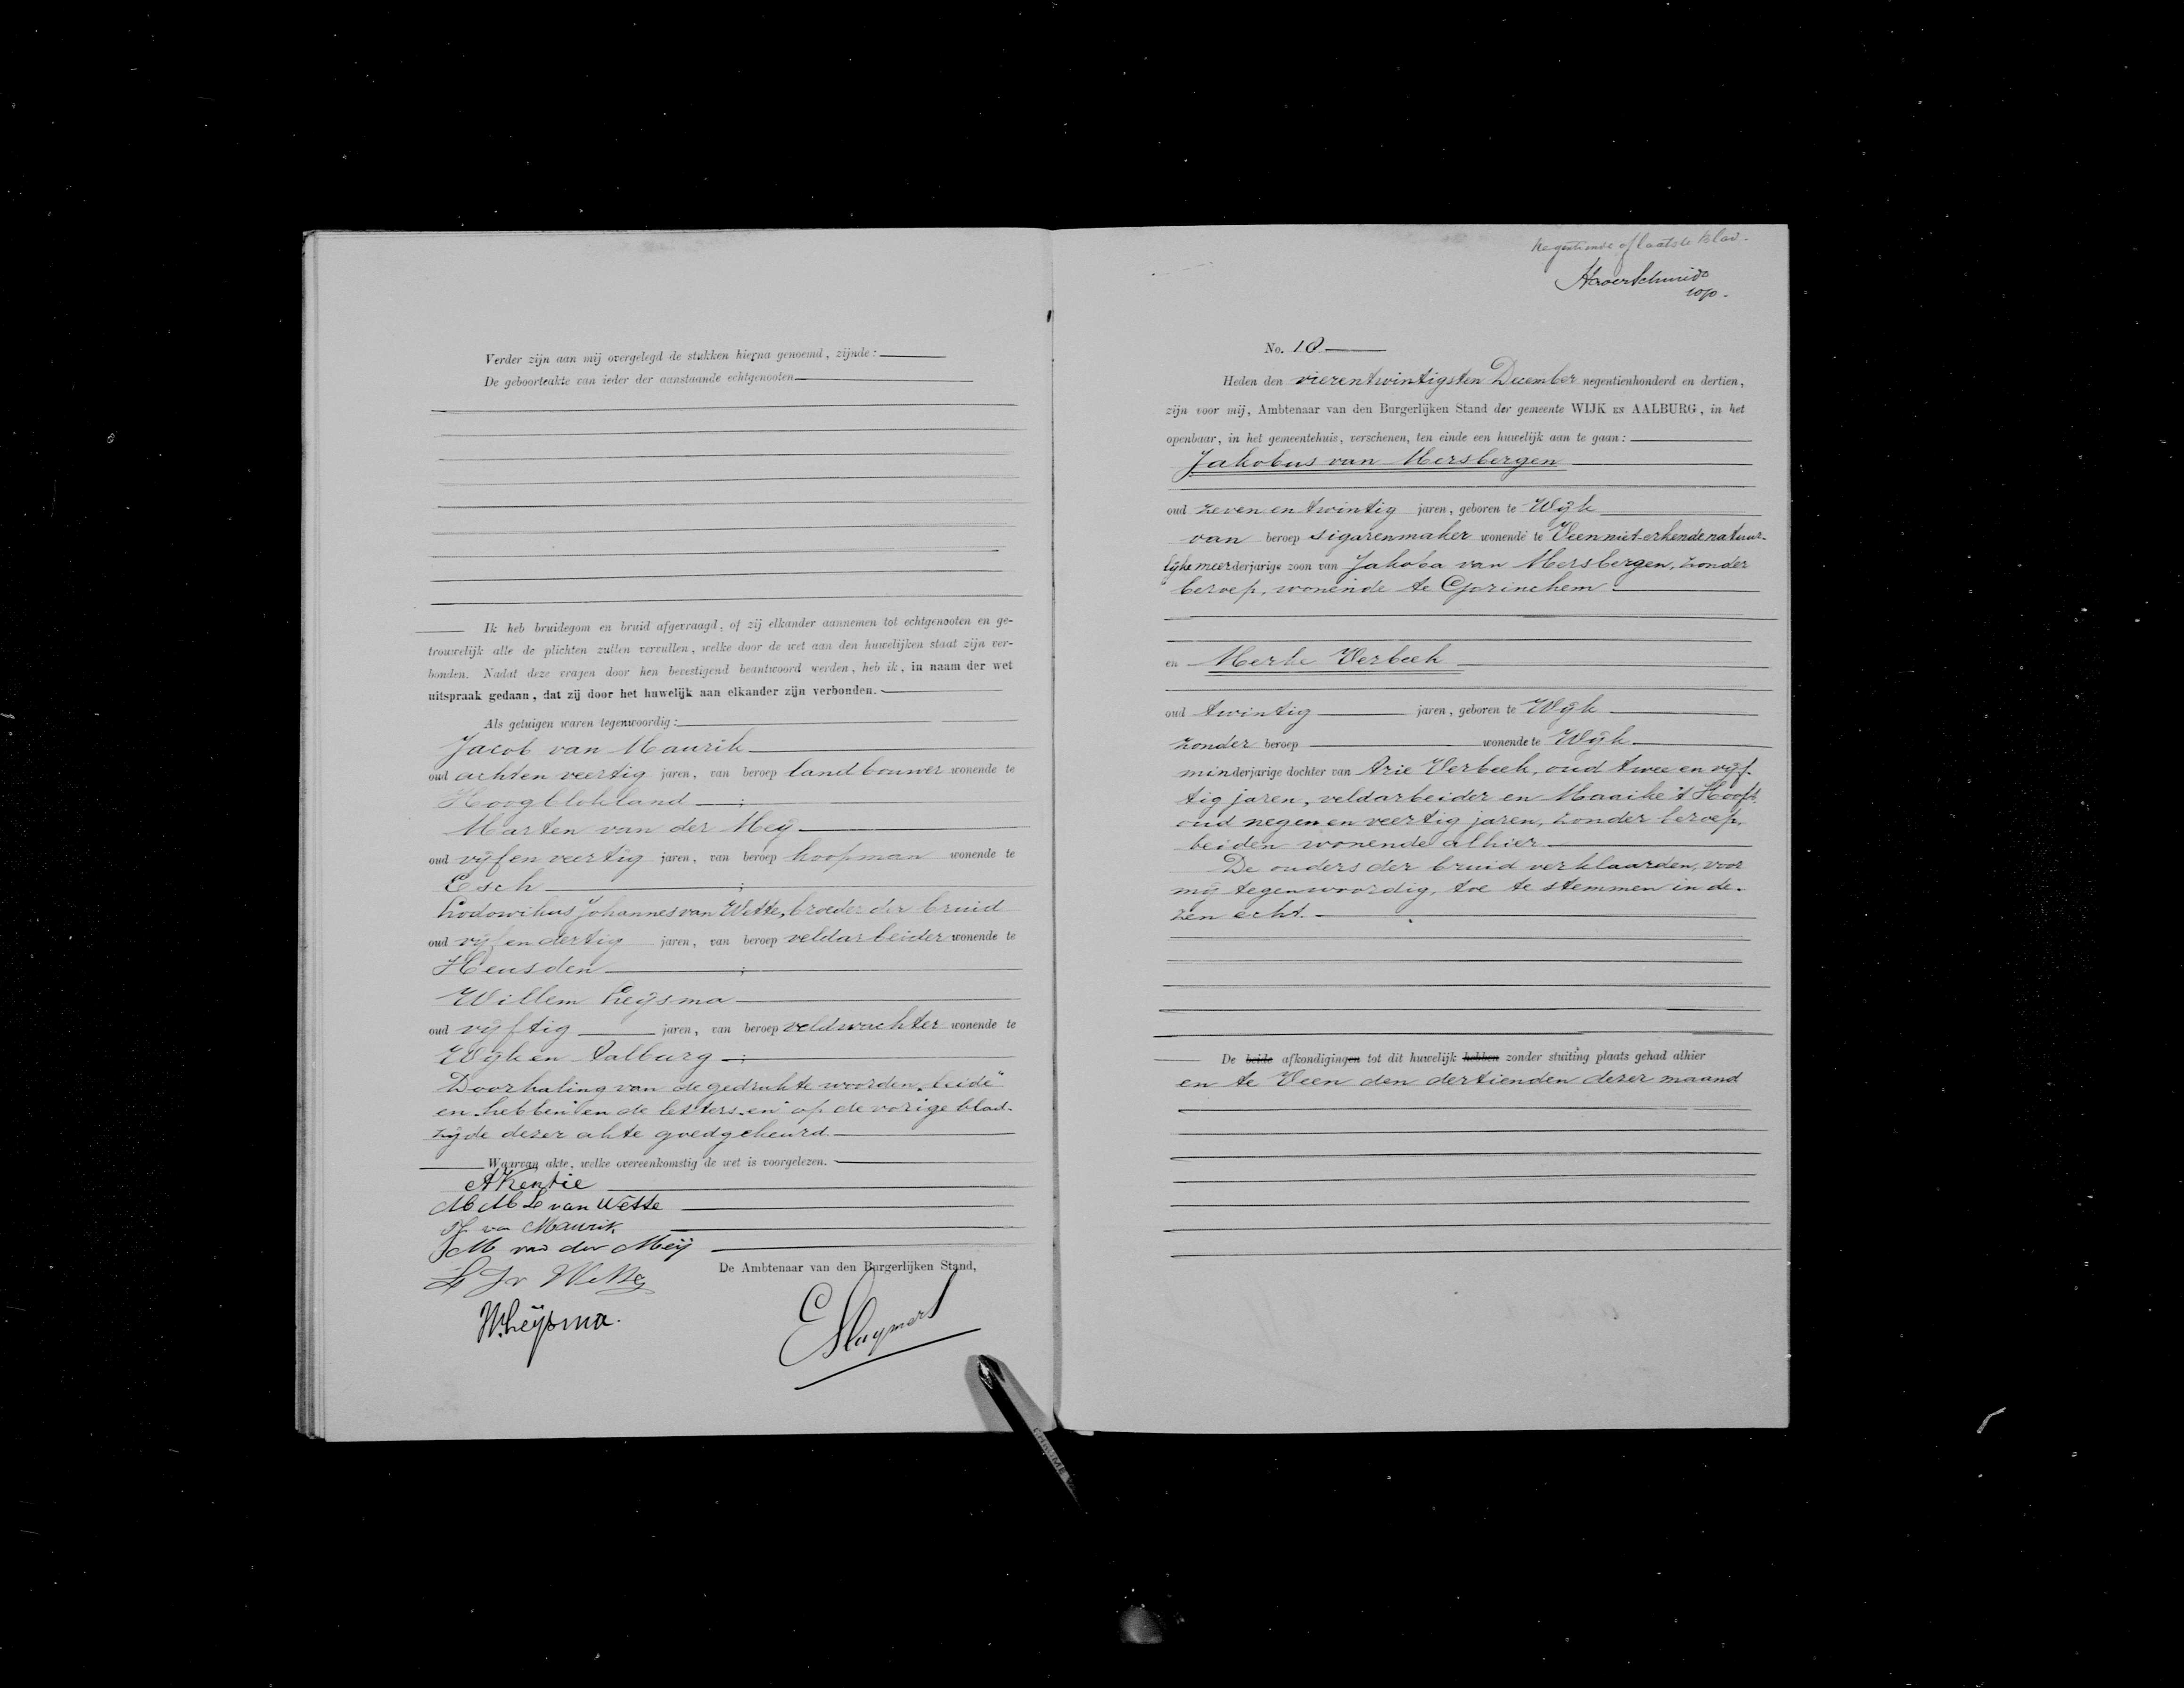 Verder zijn aan mij overgelegd de stukken hierna genoemd, zijnde:
De geboorteakte van ieder der aanstaande echtgenooten
Ik heb bruidegom en bruid afgevraagd, of zij elkander aannemen tot echtgenooten en ge-
trouwelijk alle de plichten zullen vervullen, welke door de wet aan den huwelijken staat zijn ver-
bonden. Nadat deze vragen door hen bevestigend beantwoord werden, heb ik, in naam der wet
uitspraak gedaan, dat zij door het huwelijk aan elkander zijn verbonden.
Als getuigen waren tegenwoordig:
Jacob van Maurik
oud achtenveertig jaren, van beroep landbouwer wonende te
Hoogblokland ;
Marten van der Meij
oud vijfenveertig jaren, van beroep koopman wonende te
Esch ;
Lodowikus Johannes van Wette, broeder der bruid
oud vijfendertig jaren, van beroep veldarbeider wonende te
Heusden ;
Willem Leijsma
oud vijftig jaren, van beroep veldwachter wonende te
Wijk en Aalburg ;
Doorhaling van de gedrukte woorden "beide"
en "hebben" en de letters "en" op de vorige blad-
zijde dezer akte goedgekeurd.
Waarvan akte, welke overeenkomstig de wet is voorgelezen.
A Kentie
M M L van Wette
J. van Maurik
M van der Meij
L J v Wette
W. Leijsma.
De Ambtenaar van den Burgerlijken Stand,
Negentiende of laatste blad.
No. 18
Heden den vierentwintigsten December negentienhonderd en dertien,
zijn voor mij, Ambtenaar van den Burgerlijken Stand der gemeente WIJK EN AALBURG, in het
openbaar, in het gemeentehuis, verschenen, ten einde een huwelijk aan te gaan:
Jakobus van Mersbergen
oud zevenentwintig jaren, geboren te Wijk
van beroep sigarenmaker wonende te Veen niet-erkende natuur-
lijke meerderjarige zoon van Jakoba van Mersbergen, zonder
beroep, wonende te Gorinchem.
en Merke Verbeek
oud twintig jaren, geboren te Wijk
zonder beroep wonende te Wijk
minderjarige dochter van Arie Verbeek, oud twee en vijf-
tig jaren, veldarbeider en Maaike 't Hooft,
oud negenenveertig jaren, zonder beroep,
beiden wonende alhier
De ouders der bruid verklaarden, voor
mij tegenwoordig, toe te stemmen in de-
zen echt.
De beide afkondigingen tot dit huwelijk hebben zonder stuiting plaats gehad alhier
en te Veen den dertienden dezer maand